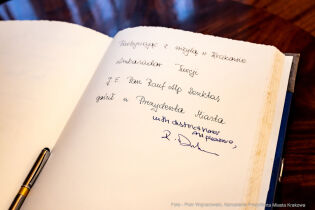 Przebywając z wizytą w Krakowie
Ambasador Turcji
J.E. Pan Rauf Alp Denktaş
gościł u Prezydenta Miasta
with distinct honor
and pleasure,
R. D
Foto - Piotr Wojnarowski, Kancelaria Prezydenta Miasta Krakowa